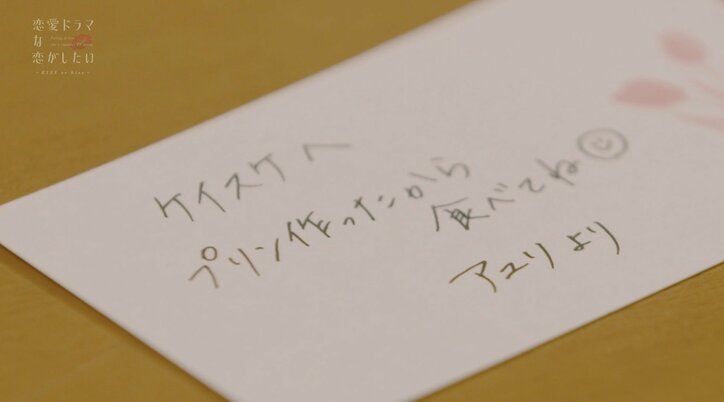 恋愛ドラマ
な
恋がしたい
- KISS or kiss -
ケイスケへ
プリン作ったから
食べてね
アユリより